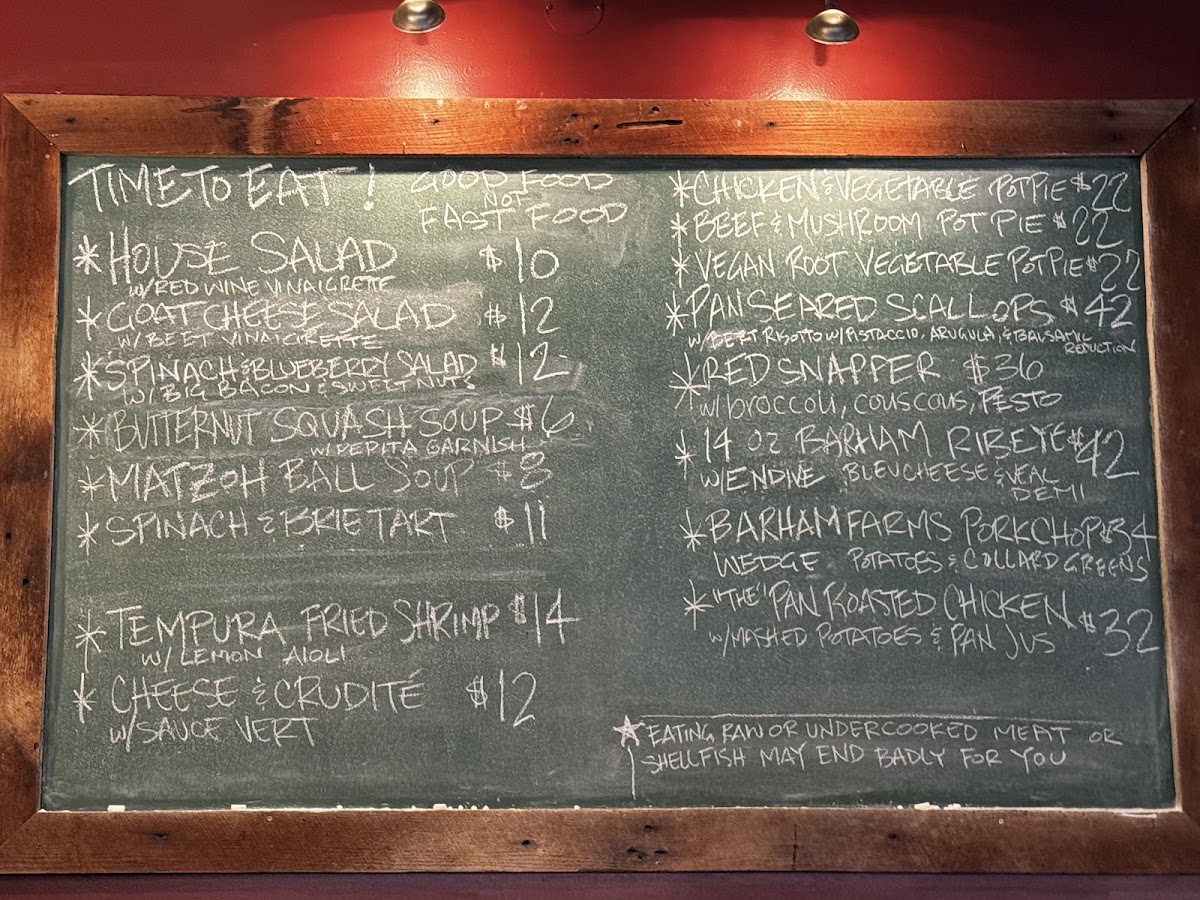 TIME TO EAT!
GOOD FOOD
NOT
FAST FOOD
* HOUSE SALAD $10
w/ RED WINE VINAIGRETTE
* GOAT CHEESE SALAD $12
w/ BEET VINAIGRETTE
* SPINACH & BLUEBERRY SALAD $12
w/ BIG BACON & SWEET NUTS
* BUTTERNUT SQUASH SOUP $6
w/ PEPITA GARNISH
* MATZOH BALL SOUP $8
* SPINACH & BRIE TART $11
* TEMPURA FRIED SHRIMP $14
w/ LEMON AIOLI
* CHEESE & CRUDITÉ $12
w/ SAUCE VERT
* CHICKEN & VEGETABLE POT PIE $22
* BEEF & MUSHROOM POT PIE $22
* VEGAN ROOT VEGETABLE POT PIE $22
* PAN SEARED SCALLOPS $42
w/ BEET RISOTTO w/ PISTACCIO, ARUGULA, & BALSAMIC
REDUCTION
* RED SNAPPER $36
w/ broccoli, couscous, PESTO
* 14 oz BARHAM RIBEYE $42
w/ ENDIVE BLEU CHEESE & VEAL
DEMI
* BARHAM FARMS PORKCHOP $34
WEDGE POTATOES & COLLARD GREENS
* "THE" PAN ROASTED CHICKEN $32
w/ MASHED POTATOES & PAN JUS
* EATING RAW OR UNDERCOOKED MEAT OR
SHELLFISH MAY END BADLY FOR YOU